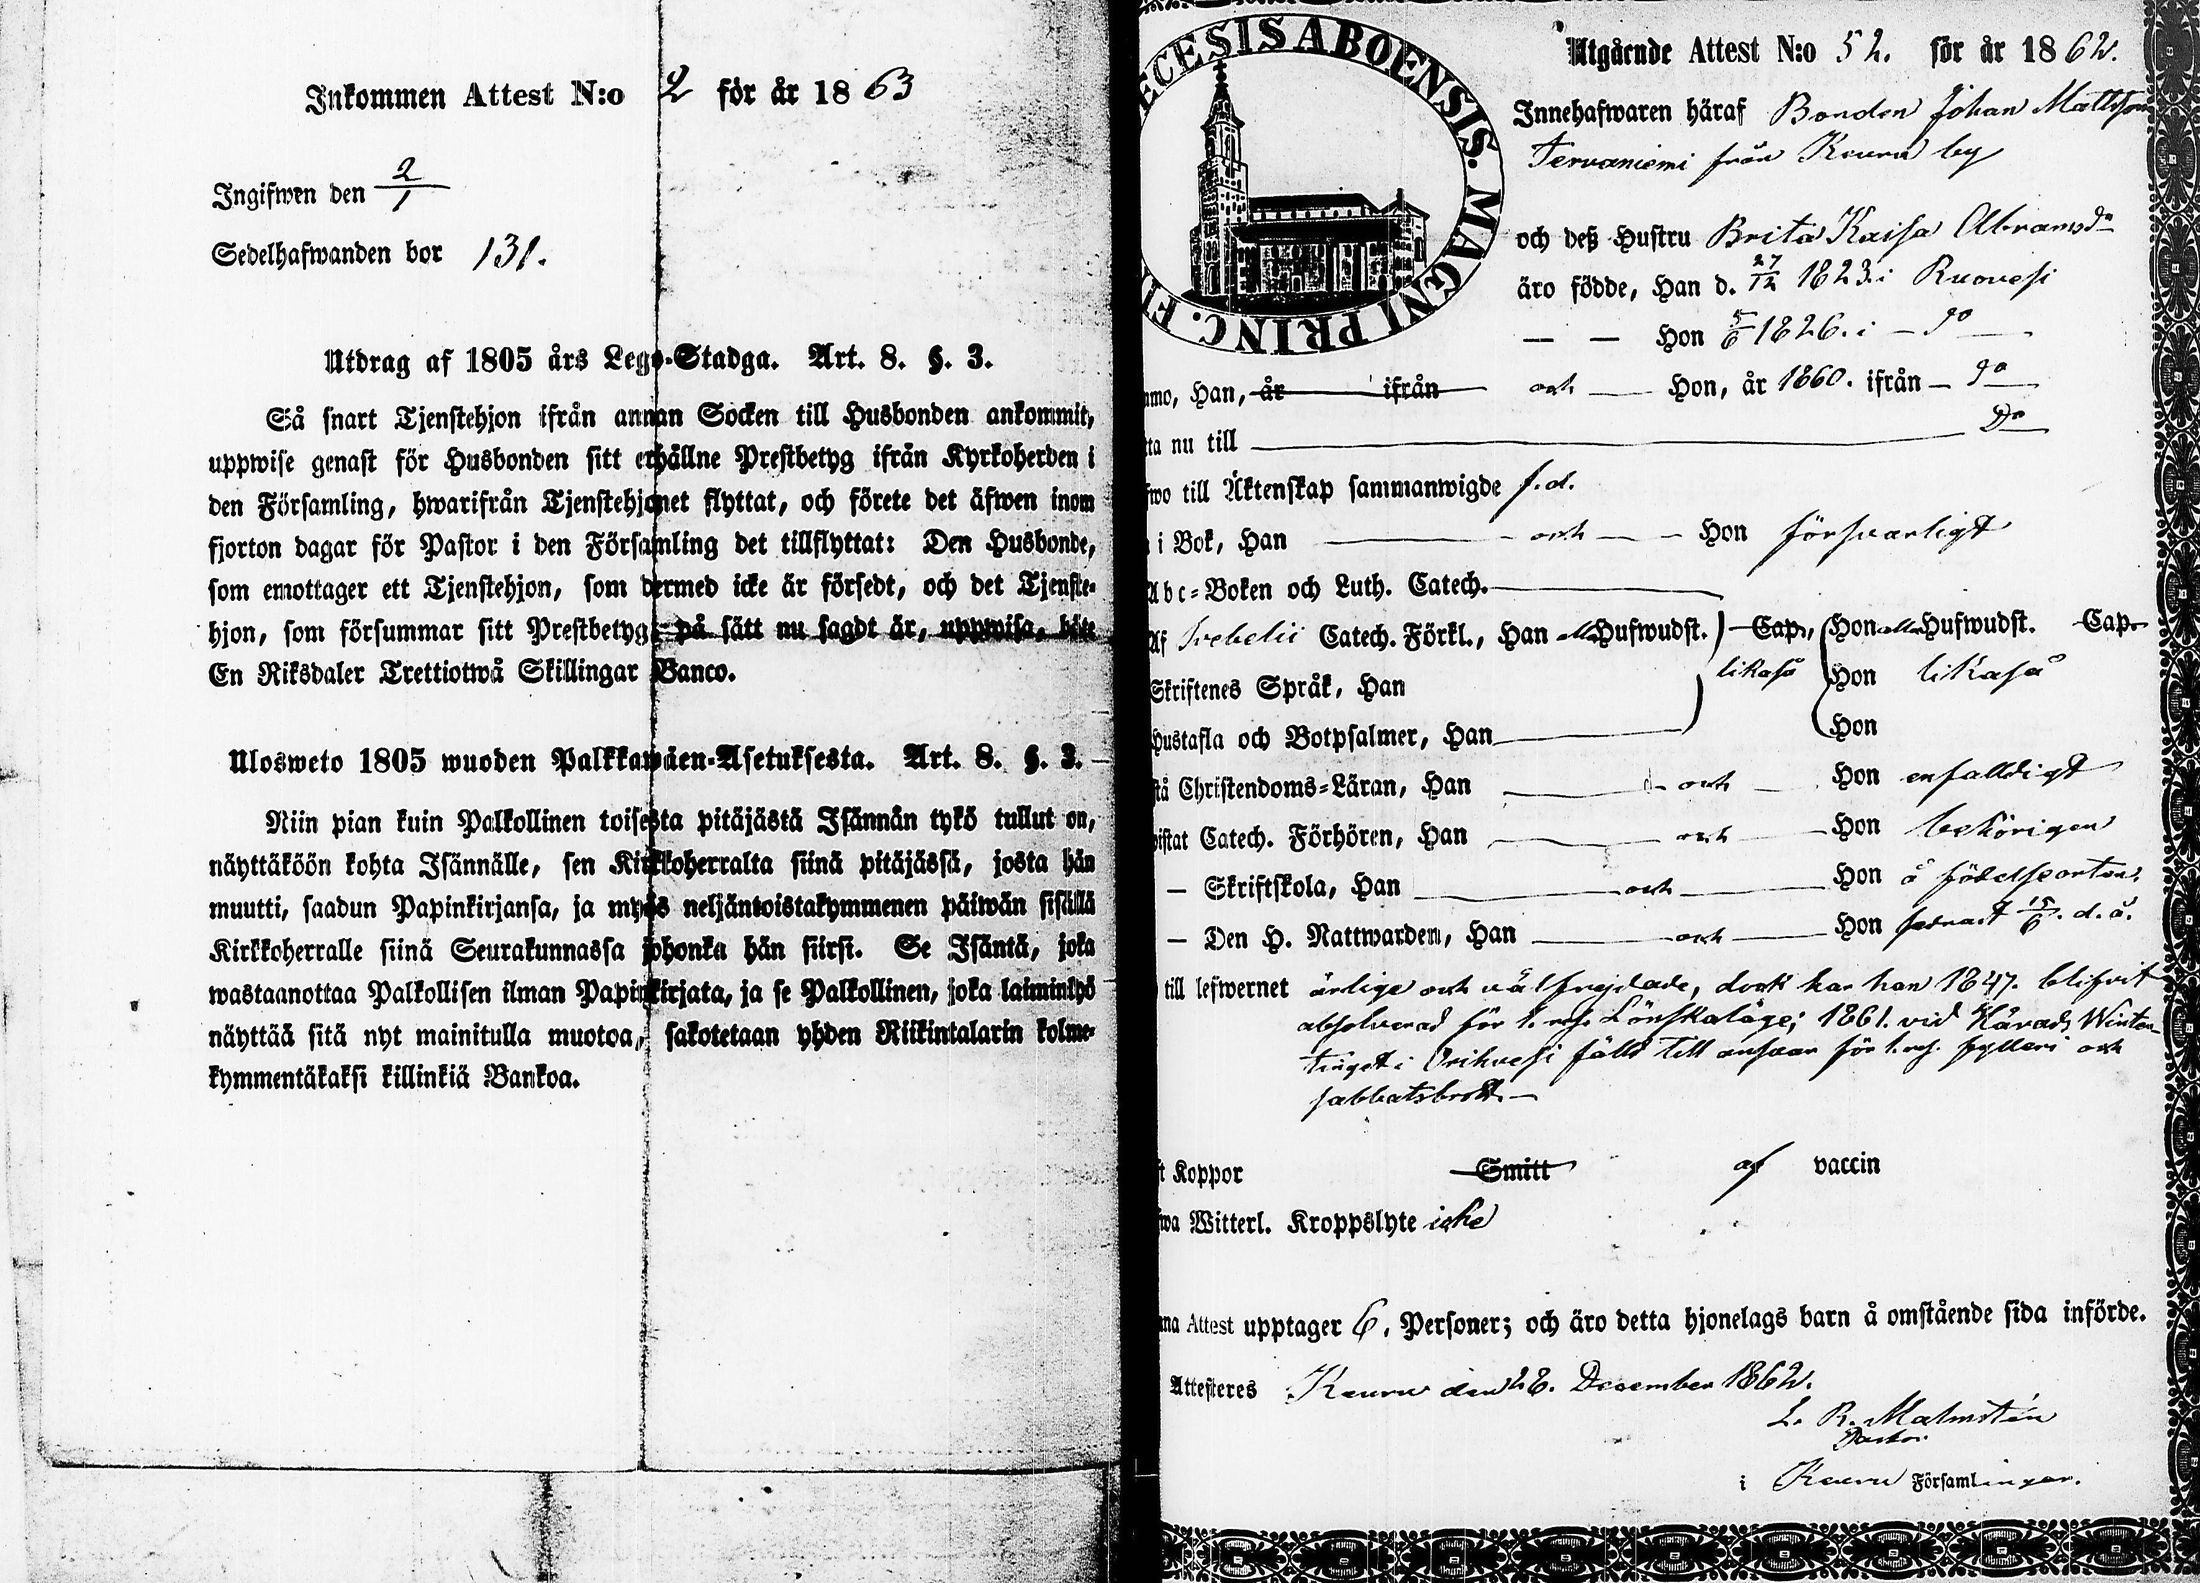 Inkommen Attest N:o 2 för år 1863
Ingifwen den 2/1
Sedelhafwanden bor 131.
Utdrag af 1805 års Lego-Stadga. Art. 8. §. 3.
Så snart Tjenstehjon ifrån annan Socken till Husbonden ankommit,
uppwise genast för Husbonden sitt erhållne Prestbetyg ifrån Kyrkoherden i
den Församling, hwarifrån Tjenstehjonet flyttat, och förete det äfwen inom
fjorton dagar för Pastor i den Församling det tillflyttat: Den Husbonde,
som emottager ett Tjenstehjon, som dermed icke är försedt, och det Tjenste-
hjon, som försummar sitt Prestbetyg, på sätt nu sagdt är, uppwisa, böte
En Riksdaler Trettiotwå Skillingar Banco.
Ulosweto 1805 wuoden Palkkawäen-Asetuksesta. Art. 8. §. 3.
Niin pian kuin Palkollinen toisesta pitäjästä Isännän tykö tullut on,
näyttäköön kohta Isännälle, sen Kirkkoherralta siinä pitäjässä, josta hän
muutti, saadun Papinkirjansa, ja myös neljäntoistakymmenen päiwän sisällä
Kirkkoherralle siinä Seurakunnassa johonka hän siirsi. Se Isäntä, joka
wastaanottaa Palkollisen ilman Papinkirjata, ja se Palkollinen, joka laiminlyö
näyttää sitä nyt mainitulla muotoa, sakotetaan yhden Riikintalarin kolme-
kymmentäkaksi killinkiä Bankoa.
ECESIS ABOENSIS. MAGNI PRINC. FI
Utgående Attest N:o 52. för år 1862.
Innehafwaren häraf Bonden Johan Mattsson
Tervaniemi från Keuru by
och deß Hustru Brita Kaisa Abramsdr
äro födde, Han d. 27/12 1823. i Ruovesi
— — Hon 5/6 1826. i — do —
mmo, Han, år ifrån och — Hon, år 1860. ifrån — do
ta nu till — Do
fwo till Äktenskap sammanwigde f.d.
i Bok, Han — och — Hon försvarligt
Abc-Boken och Luth. Catech.
Af Svebelii Catech. Förkl., Han alla Hufwudst. Cap., Hon alla Hufwudst. Cap.
Skriftenes Språk, Han likaså Hon likaså
Hustafla och Botpsalmer, Han Hon
stå Christendoms-Läran, Han — och — Hon enfalldigt
wistat Catech. Förhören, Han — och — Hon behörigen
— Skriftskola, Han — och — Hon å födelseorten.
— Den H. Nattwarden, Han — och — Hon senast 15/6. d. å.
till lefwernet ärlige och välfrejdade, dock har han 1847. blifvit
absolverad för 1. res. Lönskaläge; 1861. vid Härads Winter
tinget i Orihvesi fälld till ansvar för 1. res. fylleri och
sabbatsbrott. —
t Koppor Smitt af vaccin
fwa Witterl. Kroppslyte icke
na Attest upptager 6. Personer; och äro detta hjonelags barn å omstående sida införde.
Attesteres Keuru den 28. December 1862.
L. R. Malmstén
Pastor
i Keuru Församlingar.